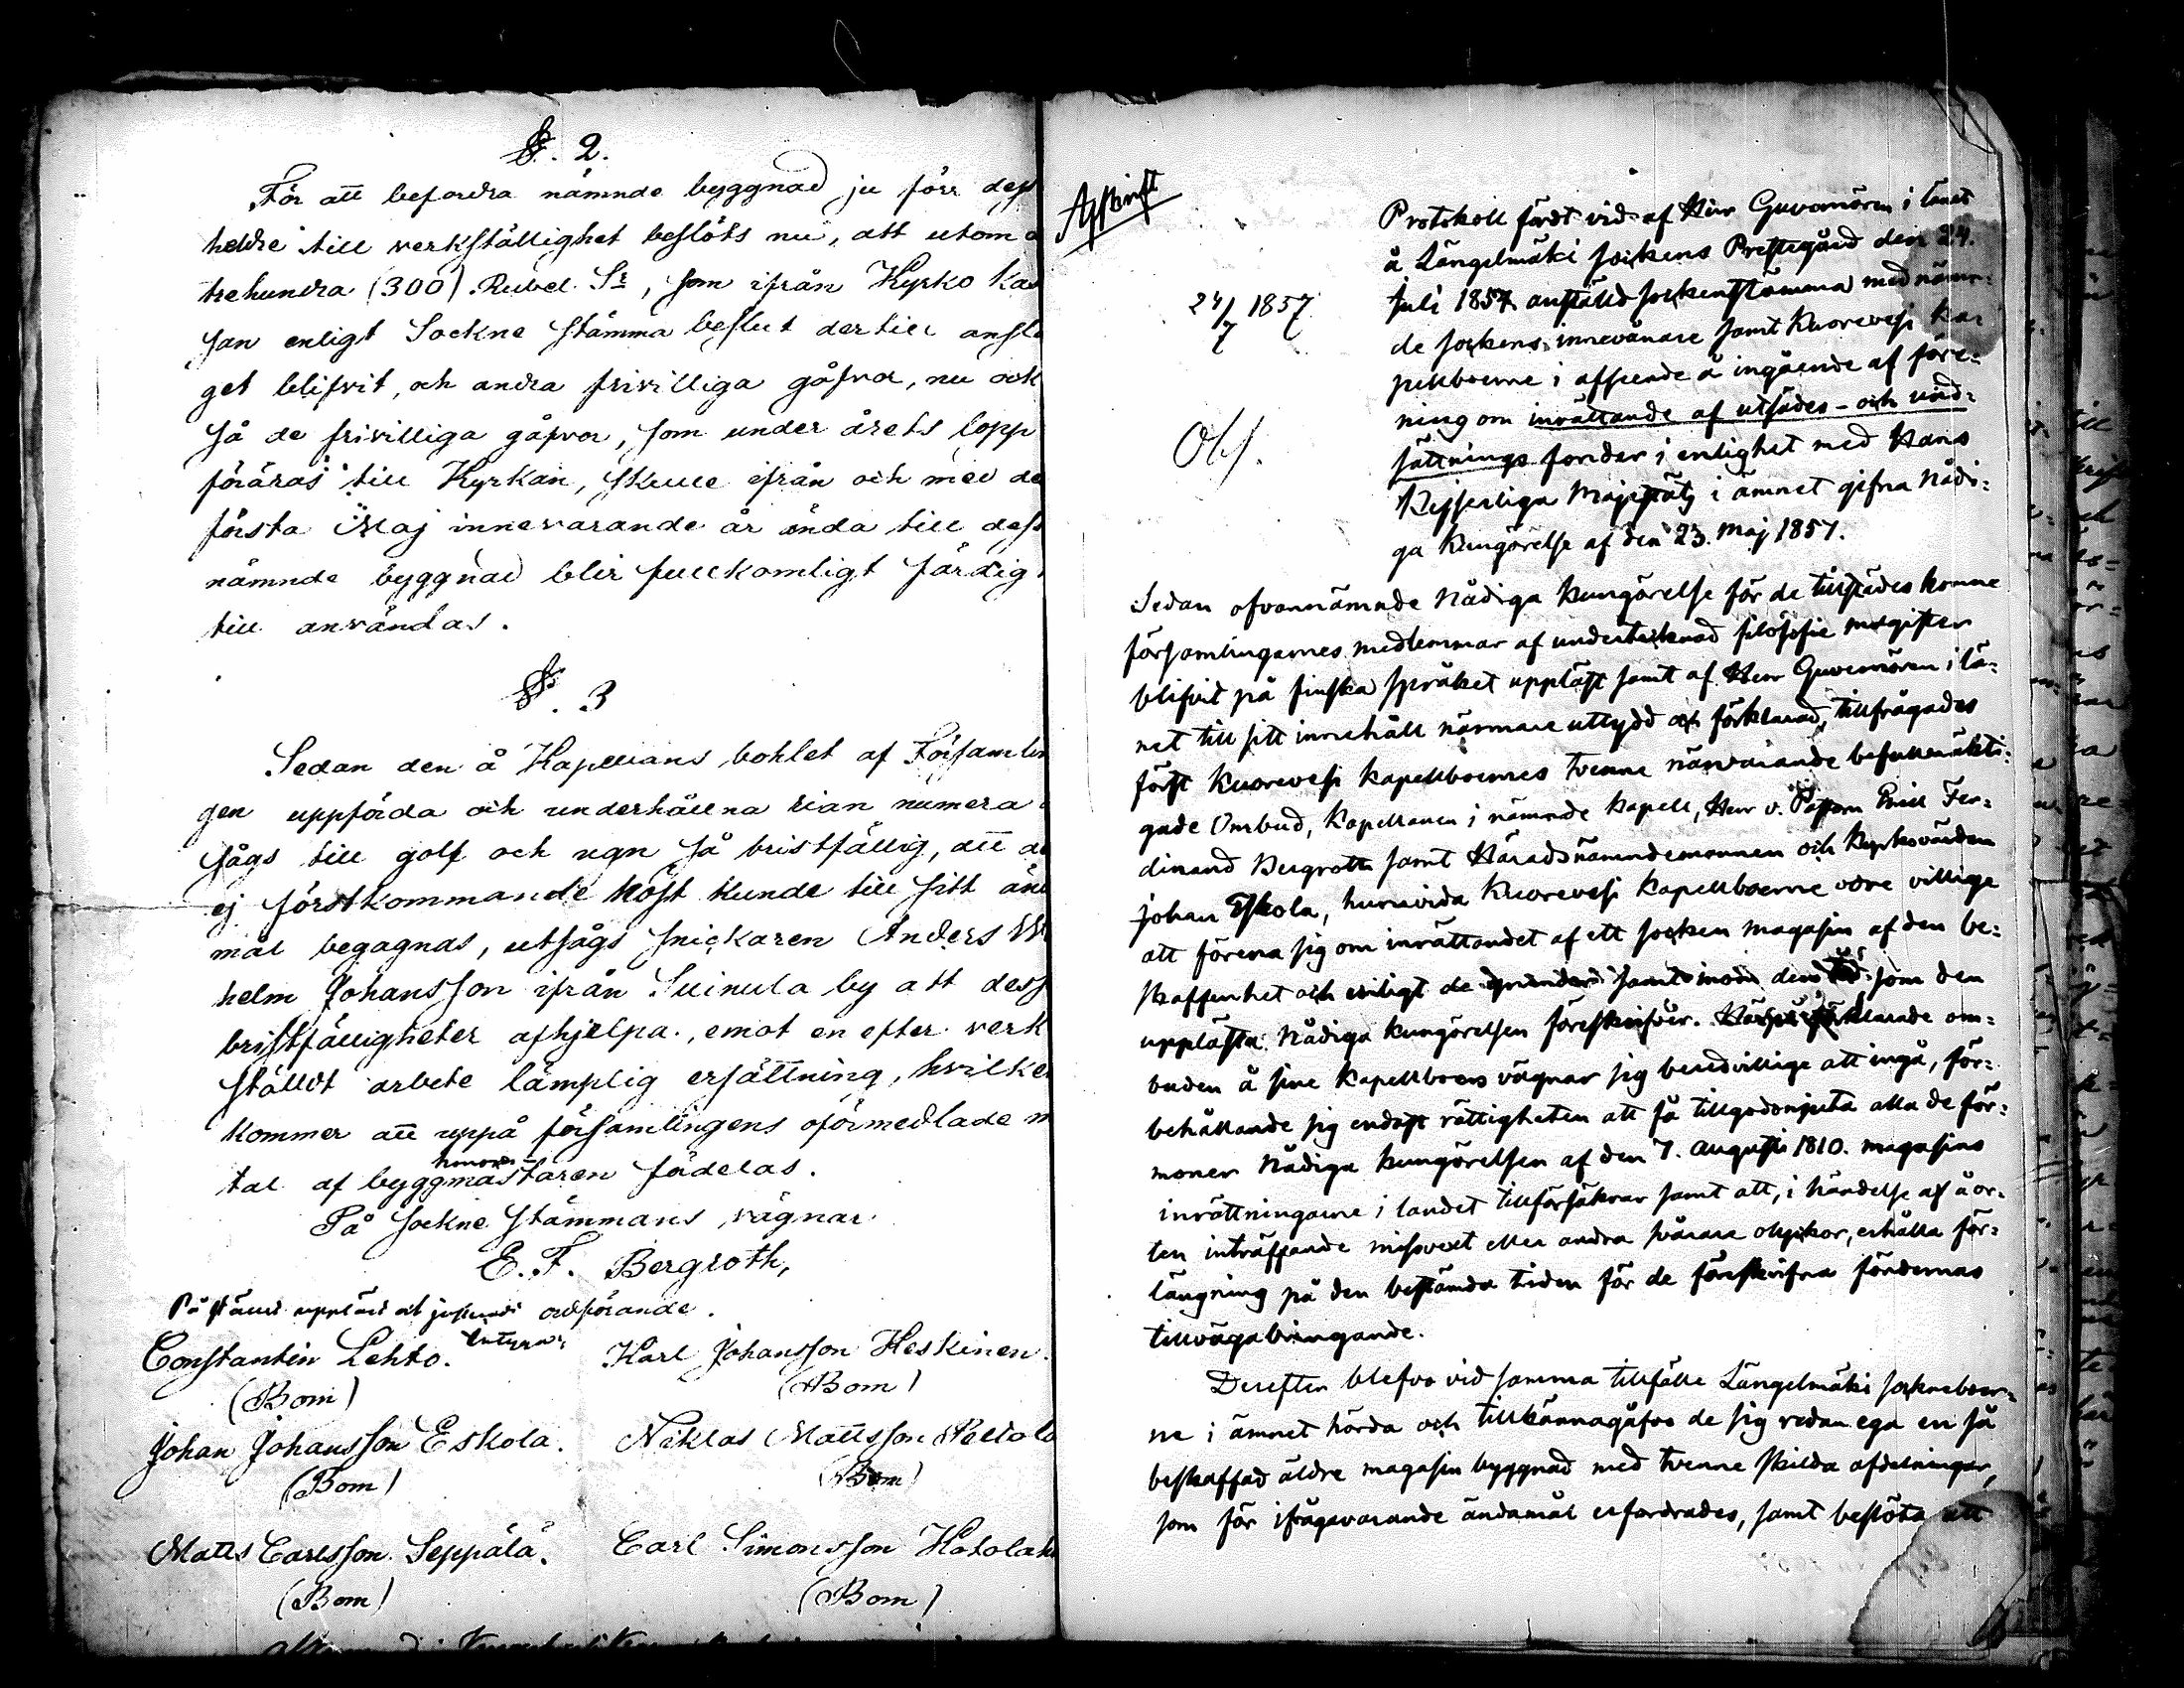 §. 2.
För att befordra nämnde byggnad ju förr dess
heldre till verkställighet beslöts nu, att utom
trehundra (300) Rubel Sr, som ifrån Kyrko kas
san enligt Sockne stämma beslut dertill ansla
get blifvit, och andra frivilliga gåfvor, nu ock
så de frivilliga gåfvor, som under årets lopp
föräras till Kyrkan, skulle ifrån och med de
första Maj innevarande år ända till dess
nämnde byggnad blir fullkomligt färdig
till användas.
§. 3
Sedan den å Kapellans bohlet af Församlin
gen uppförda och underhållna rian numera
sågs till golf och ugn så bristfällig, att
ej förstkommande höst kunde till sitt än
mål begagnas, utsågs snickaren Anders W
helm Johansson ifrån Suinula by att dess
bristfälligheter afhjelpa, emot en efter verk
ställdt arbete lämplig ersättning, hvilke
kommer att uppå församlingens oförmedlade m
tal af byggmästaren fördelas.
På sockne stämmans vägnar
E. F. Bergroth,
ordförande.
På stämd uppläst och justeradt
intygar:
Constantin Lehto. Karl Johansson Heskinen.
(Bom) (Bom)
Johan Johansson Eskola. Niklas Mattsson Peltola
(Bom) (Bom)
Matts Carlsson Seppälä. Carl Simonsson Hokola
(Bom) (Bom)
Afskrift
24/7 1857
Obs.
Protokoll fördt vid af Herr Guvernören i länet
å Längelmäki sockens Prestegård den 24.
Juli 1857 anställd sockenstämma med nämn-
de sockens innevånare samt Kuorevesi ka-
pellboerne i afseende å ingående af före-
ning om inrättande af utsädes- och und-
sättnings fonder i enlighet med Hans
Kejserliga Majestäts i ämnet gifna Nådi-
ga Kungörelse af den 23. Maj 1857.
Sedan ofvannämnde Nådiga Kungörelse för de tillstädes komne
församlingarnes medlemmar af undertecknad filosofie magister
blifvit på finska språket uppläst samt af Herr Guvernören i lä-
net till sitt innehåll närmare uttydd och förklarad, tillfrågades
först Kuorevesi kapellboernes tvenne närvarande befullmäkti-
gade Ombud, Kapellanen i nämnde kapell, Herr v. Pastorn Emil Fer-
dinand Bergroth samt Häradsnämndemannen och Kyrkovärden
Johan Eskola, huruvida Kuorevesi Kapellboerne vore villige
att förena sig om inrättandet af ett socken magasin af den be-
skaffenhet och enligt de grunder samt inom den tid som den
upplästa Nådiga kungörelsen föreskrifver. Härpå förklarade om-
buden å sine Kapellboers vägnar sig beredvillige att ingå, för-
behållande sig endast rättigheten att få tillgodonjuta alla de för-
moner Nådiga kungörelsen af den 7. Augusti 1810. magasins
inrättningarne i landet tillförsäkrar samt att, i händelse af å or-
ten inträffande missvext eller andra svårare olyckor, erhålla för-
längning på den bestämda tiden för de föreskrifna fondernas
tillvägabringande.
Derefter blefvo vid samma tillfälle Längelmäki sockneboer-
ne i ämnet hörda och tillkännagåfvo de sig redan ega en så
beskaffad äldre magasin byggnad med tvenne skilda afdelningar,
som för ifrågavarande ändamål erfordrades, samt beslöto att